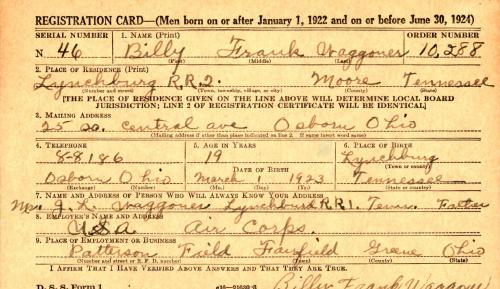 REGISTRATION CARD—(Men born on or after January 1, 1922 and on or before June 30, 1924)
SERIAL NUMBER 1. NAME (Print) ORDER NUMBER
N 46 Billy Frank Waggoner 10,288
(First) (Middle) (Last)
2. PLACE OF RESIDENCE (Print)
Lynchburg R.R.2. Moore Tennessee
(Number and street) (Town, township, village, or city) (County) (State)
[THE PLACE OF RESIDENCE GIVEN ON THE LINE ABOVE WILL DETERMINE LOCAL BOARD
JURISDICTION; LINE 2 OF REGISTRATION CERTIFICATE WILL BE IDENTICAL]
3. MAILING ADDRESS
25 so. central ave Osborn Ohio
[Mailing address if other than place indicated on line 2. If same insert word same]
4. TELEPHONE 5. AGE IN YEARS 6. PLACE OF BIRTH
8-8186 19 Lynchburg
DATE OF BIRTH (Town or county)
Osborn Ohio March 1 1923 Tennessee
(Exchange) (Number) (Mo.) (Day) (Yr.) (State or country)
7. NAME AND ADDRESS OF PERSON WHO WILL ALWAYS KNOW YOUR ADDRESS
Waggoner Lynchburg RR1. Tenn.
8. EMPLOYER'S NAME AND ADDRESS
U.S.A Air Corps.
9. PLACE OF EMPLOYMENT OR BUSINESS
Patterson Field Fairfield Greene Ohio
(Number and street or R. F. D. number) (Town) (County) (State)
I AFFIRM THAT I HAVE VERIFIED ABOVE ANSWERS AND THAT THEY ARE TRUE.
D. S. S. Form 1 Billy Frank Waggoner